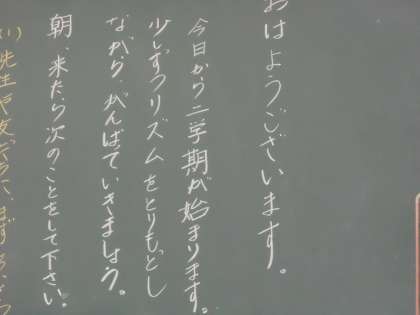 おはようございます。
今日から二学期が始まります。
少しずつリズムをとりもどし
ながら がんばっていきましょう。
朝、来たら次のことをして下さい。
(1) 先生や友だちに、まず